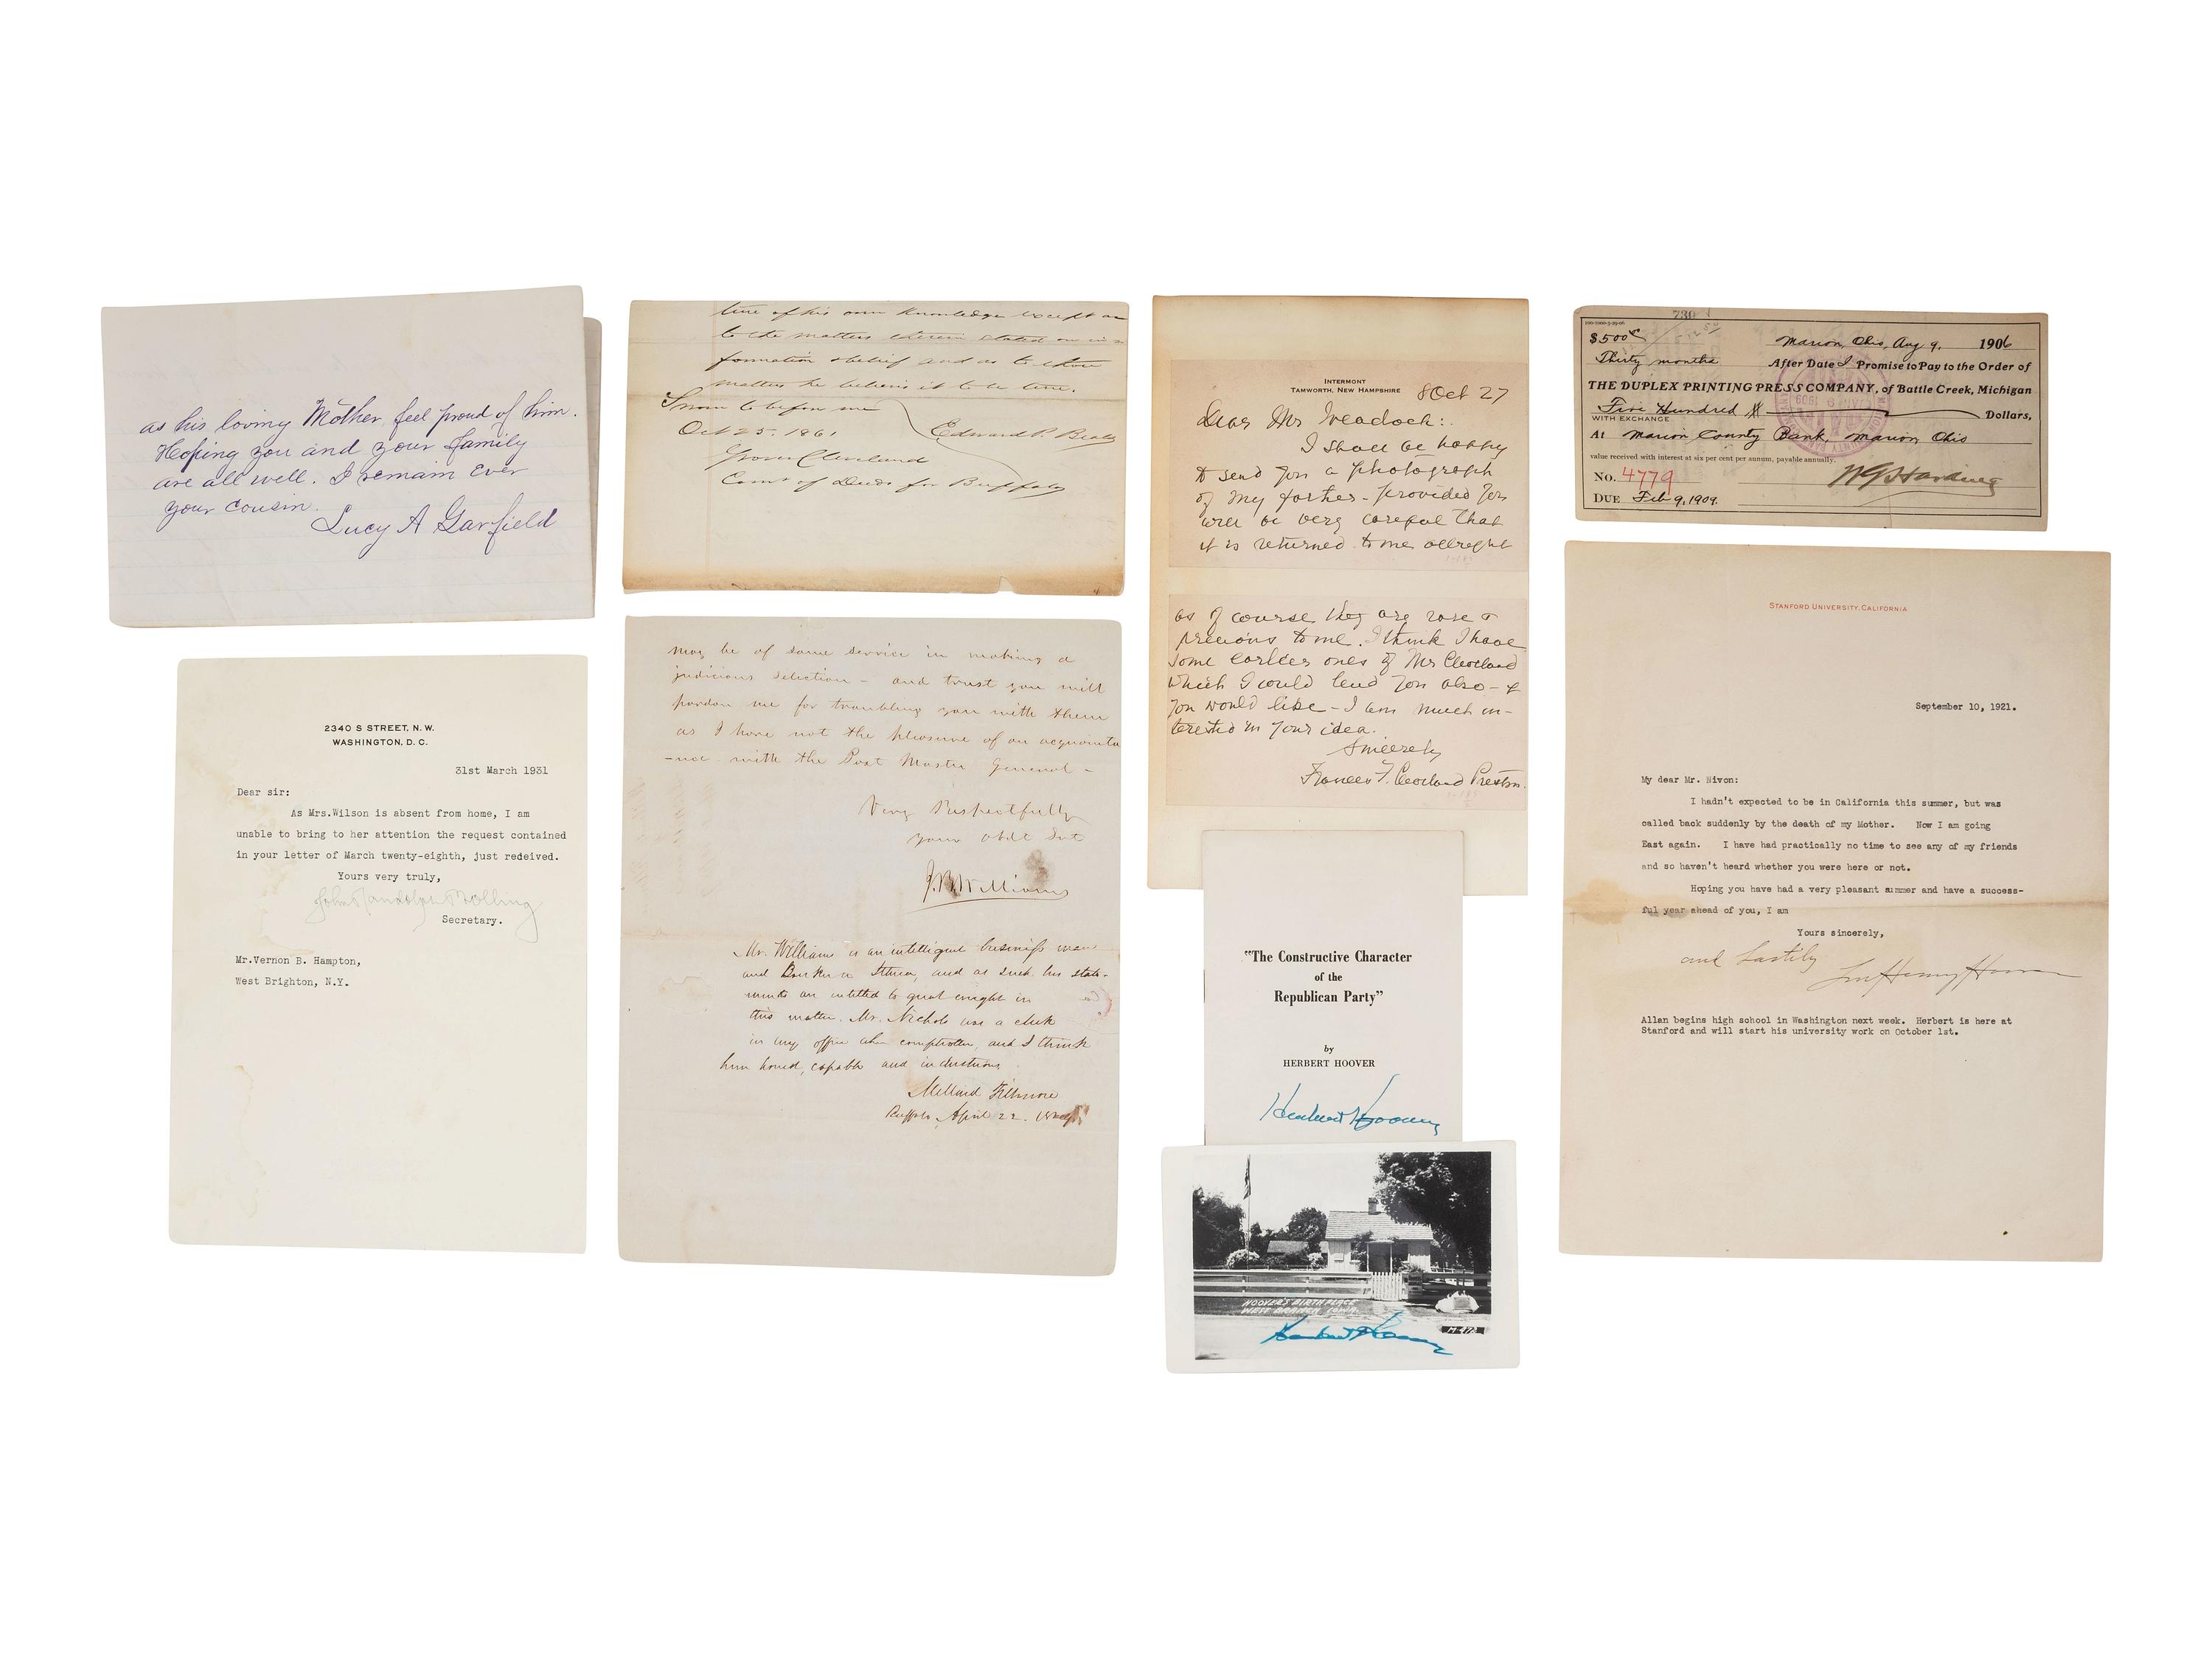 as his loving Mother feel proud of him.
Hoping you and your family
are all well. I remain ever
your cousin.
Lucy A Garfield
2340 S STREET, N. W.
WASHINGTON, D. C.
31st March 1931
Dear sir:
As Mrs.Wilson is absent from home, I am
unable to bring to her attention the request contained
in your letter of March twenty-eighth, just redeived.
Yours very truly,
John Randolph Bolling
Secretary.
Mr.Vernon B. Hampton,
West Brighton, N.Y.
true of his own knowledge except as
to the matters therein stated on in-
formation & belief and as to those
matters he believes it to be true.
Sworn to before me
Oct 25. 1861
Edward P. Beals
Grover Cleveland
Comr of Deeds for Buffalo
may be of some service in making a
judicious selection - and trust you will
pardon me for troubling you with them
as I have not the pleasure of an acquainta
-nce with the Post Master General -
Very Respectfully
your obdt Svt
J. B. Williams
Mr. Williams is an intelligent business man
and Banker in Ithica, and as such his state-
ments are intitled to great weight in
this matter. Mr. Nichols was a clerk
in my office when comptroller, and I think
him honest, capable and industrious
Millard Fillmore
Buffalo, April 22.
INTERMONT
TAMWORTH, NEW HAMPSHIRE
8 Oct 27
Dear Mr Weadock:
I shall be happy
to send you a photograph
of my father - provided you
will be very careful that
it is returned to me allright
as of course they are rare &
precious to me. I think I have
some earlier ones of Mr Cleveland
which I could lend you also - if
you would like - I am much in-
terested in your idea.
Sincerely
Frances F. Cleveland Preston.
"The Constructive Character
of the
Republican Party"
by
HERBERT HOOVER
Herbert Hoover
HOOVER'S BIRTHPLACE
WEST BRANCH IOWA.
M-472
Herbert Hoover
730
$500
Marion, Ohio, Aug 9. 1906
Thirty months After Date I Promise to Pay to the Order of
THE DUPLEX PRINTING PRESS COMPANY, of Battle Creek, Michigan
Five Hundred Dollars,
WITH EXCHANGE
At Marion County Bank, Marion, Ohio
value received with interest at six per cent per annum, payable annually.
No. 4779
W G Harding
DUE Feb 9, 1909.
STANFORD UNIVERSITY, CALIFORNIA
September 10, 1921.
My dear Mr. Nivon:
I hadn't expected to be in California this summer, but was
called back suddenly by the death of my Mother. Now I am going
East again. I have had practically no time to see any of my friends
and so haven't heard whether you were here or not.
Hoping you have had a very pleasant summer and have a success-
ful year ahead of you, I am
Yours sincerely,
and hastily
Lou Henry Hoover
Allan begins high school in Washington next week. Herbert is here at
Stanford and will start his university work on October 1st.